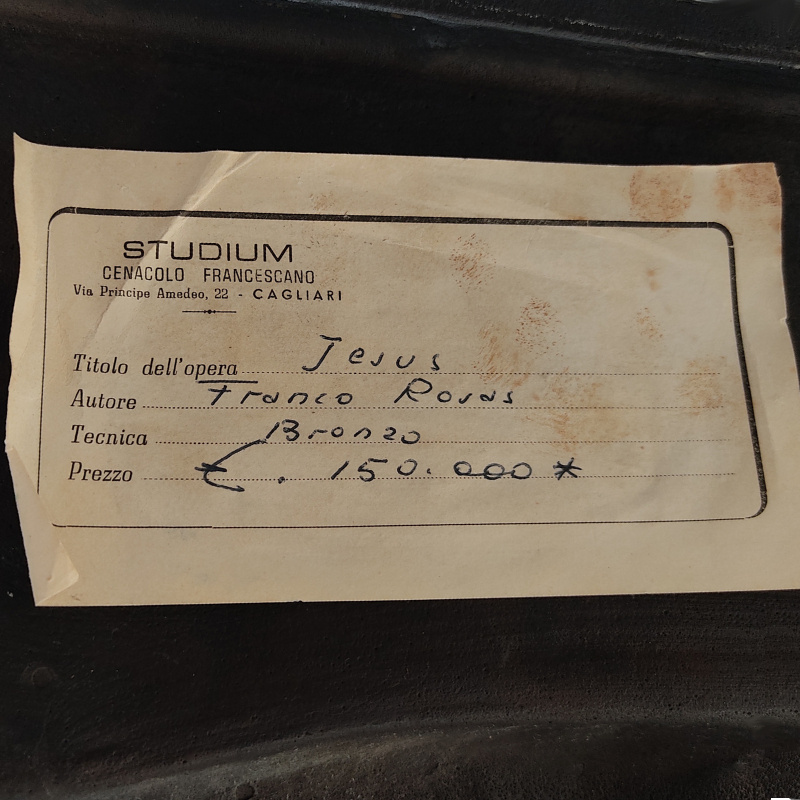 STUDIUM
CENACOLO FRANCESCANO
Via Principe Amedeo, 22 - CAGLIARI
Titolo dell'opera Jesus
Autore Franco Rosas
Tecnica Bronzo
Prezzo £. 150.000 *